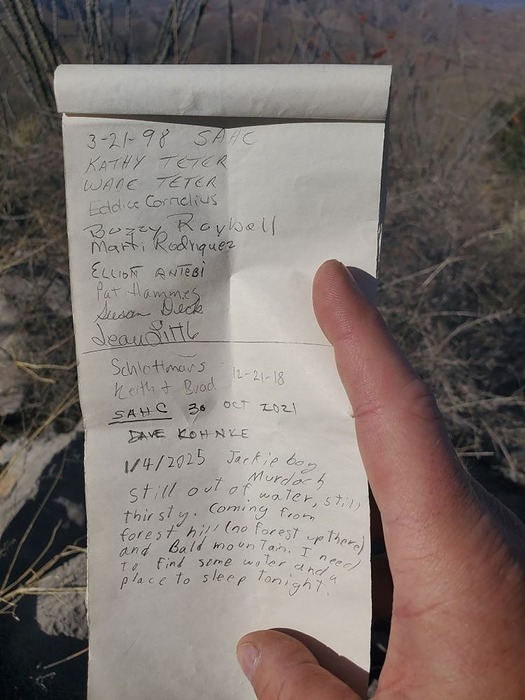 3-21-98 SAHC
KATHY TETER
WADE TETER
Eddie Cornelius
Buzzy Roybell
Marti Rodriquez
ELLIOTT ANTEBI
Pat Hammes
Susan Deck
Jean
Schlottmans
Keith & Brad 12-21-18
SAHC 30 OCT 2021
DAVE KOHNKE
1/4/2025 Jackie boy
Murdoch
Still out of water, still
thirsty. Coming from
forest hill (no forest up there)
and Bald mountain. I need
to find some water and a
place to sleep tonight.